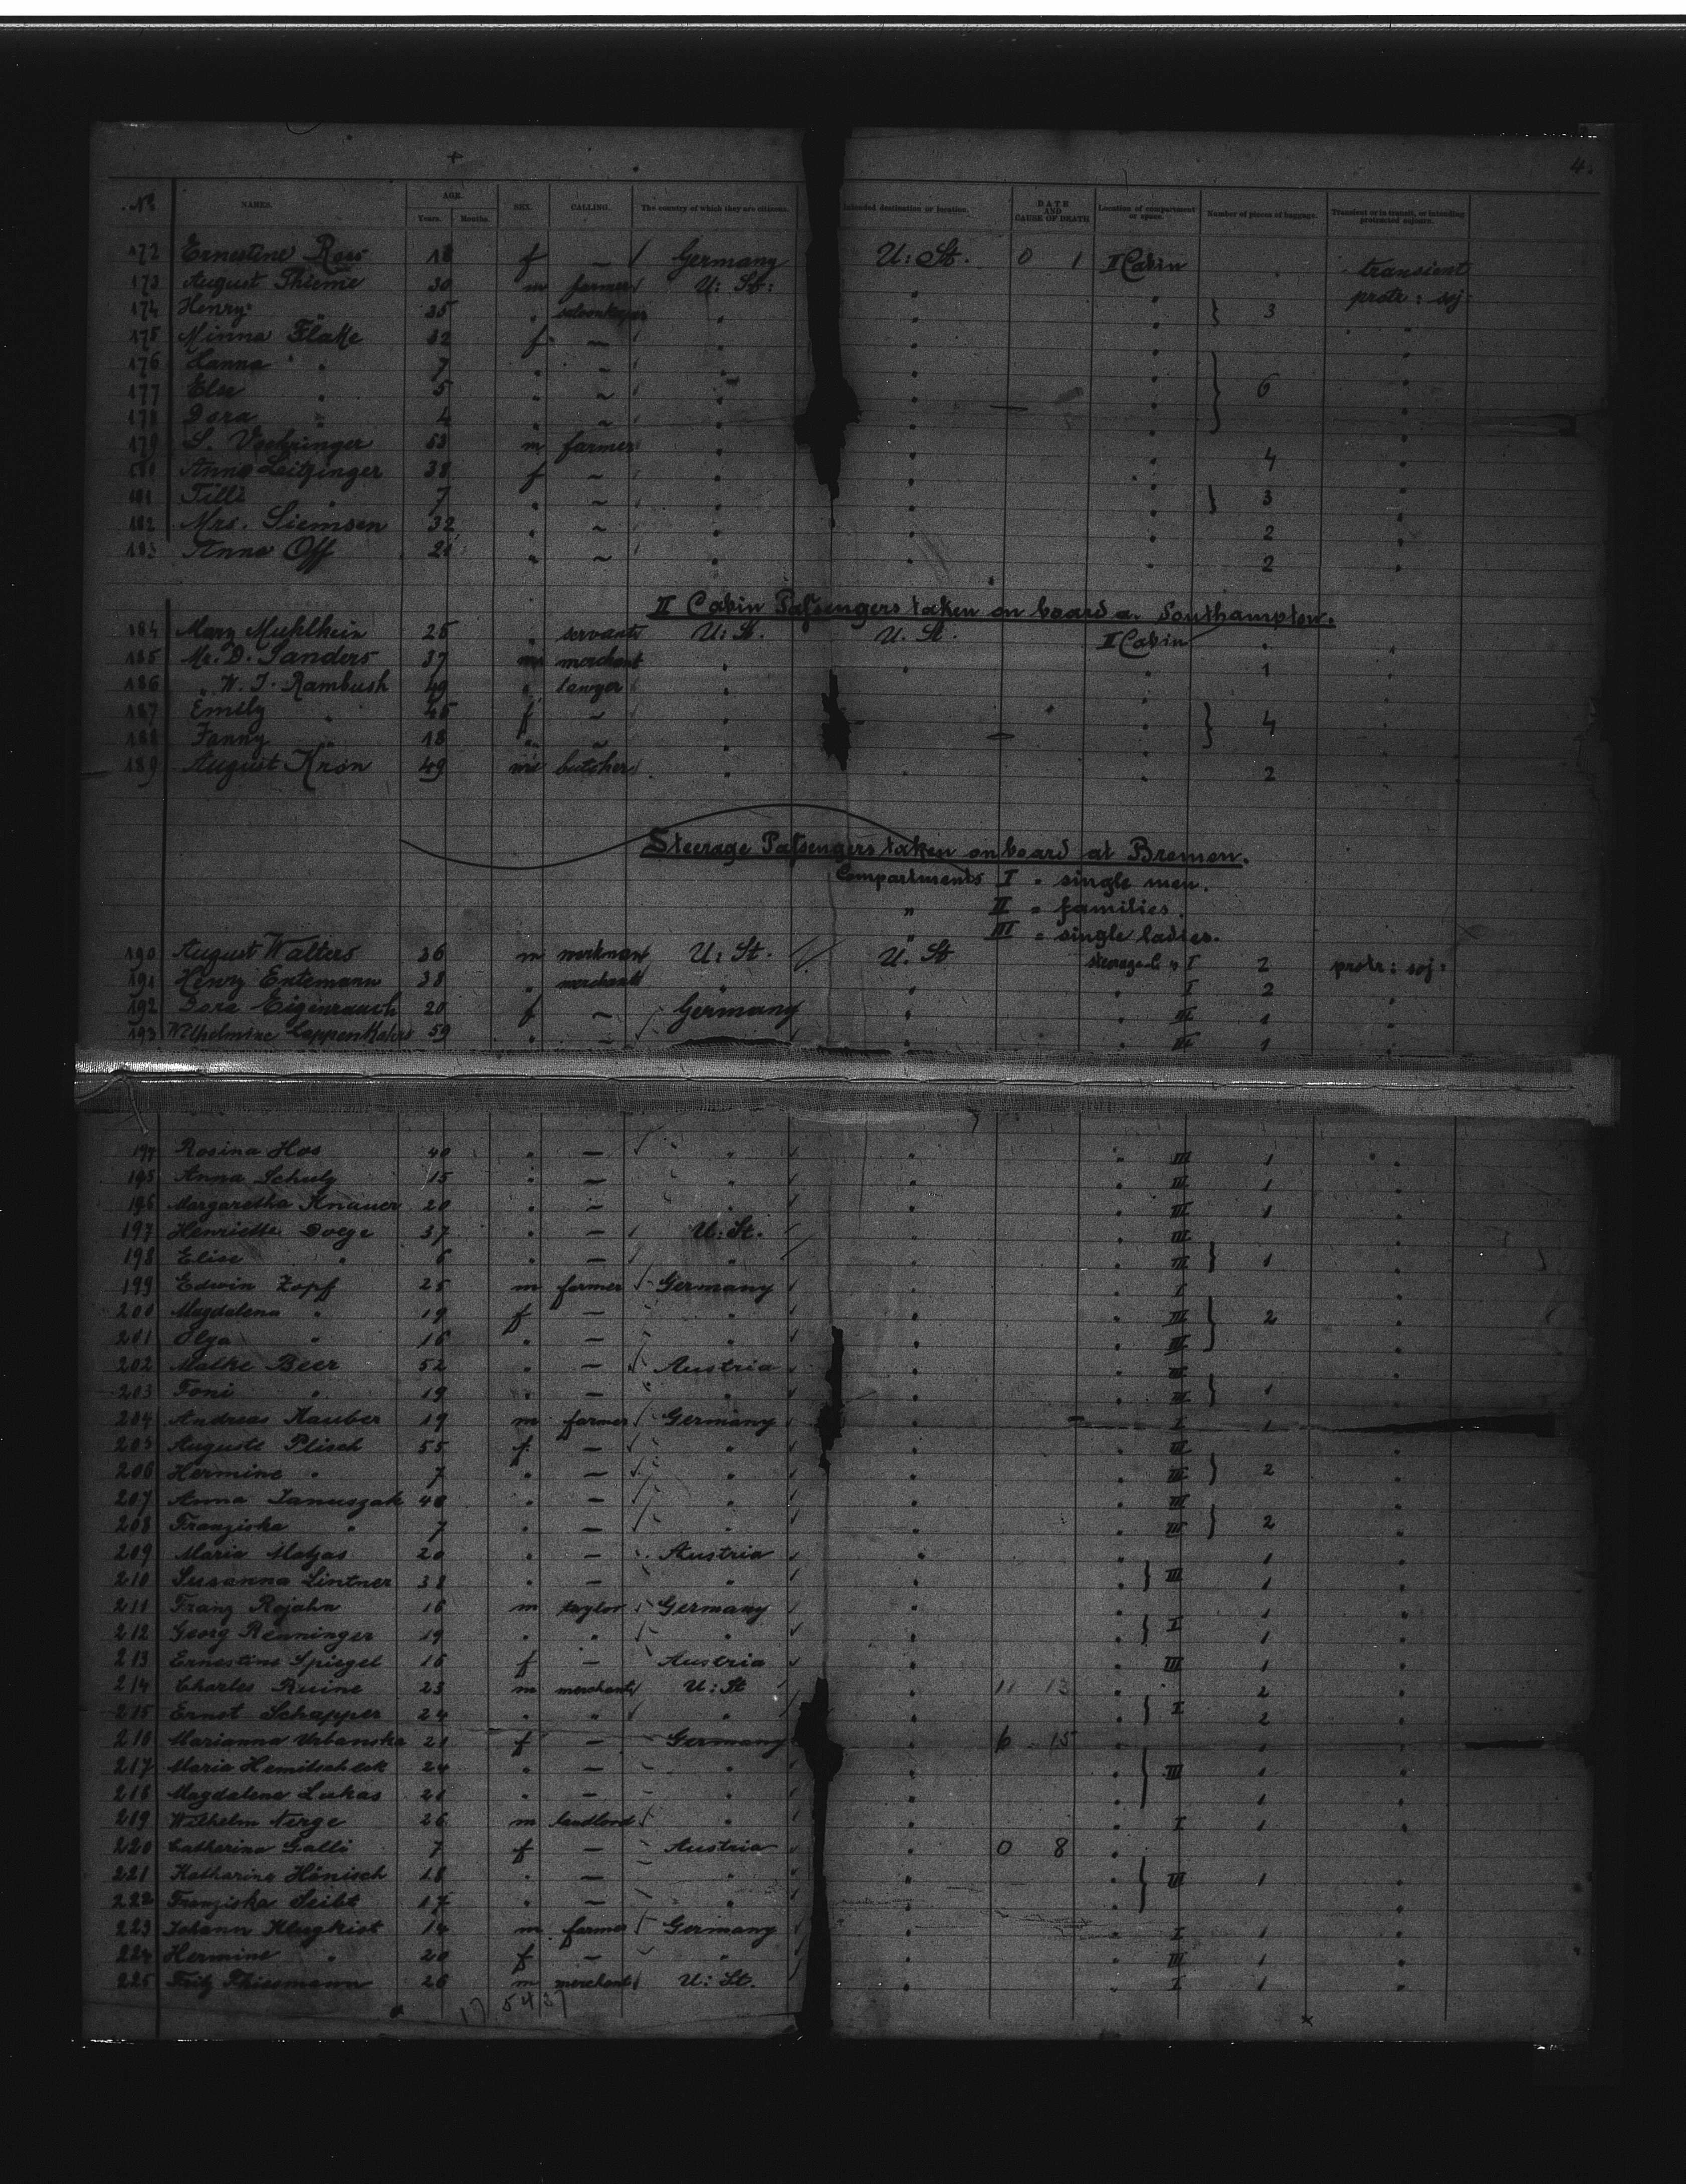 4.
No NAMES. AGE. Years. Months. SEX. CALLING. The country of which they are citizens. Intended destination or location. DATE AND CAUSE OF DEATH Location of compartment or space. Number of pieces of baggage. Transient or in transit, or intending protracted sojourn.
172 Ernestine 18 f — Germany U: St. 0 1 II Cabin transient
173 August Thieme 30 m farmer U: St: " " protr: soj:
174 Henry " 35 " saloonkeeper " " " } 3 "
175 Minna Flake 32 f — " " "
176 Hanna " 7 " — " " " "
177 Else " 5 " — " " " } 6 "
178 Dora " 4 " — " " " "
179 S. Voehringer 53 m farmer " " " 4 "
180 Anna Leitzinger 38 f — " " " "
181 Tilli " 7 " — " " " } 3 "
182 Mrs. Siemsen 32 " — " " " 2 "
183 Anna Off 21 " — " " " 2 "
II Cabin Passengers taken on board a. Southampton.
184 Mary Muhlhein 25 " servant U: St. U. St. II Cabin " "
185 Mr. D. Sanders 37 m merchant " " " 1 "
186 " W. J. Rambush 49 " lawyer " "
187 Emily " 45 f — " " } 4 "
188 Fanny " 18 " — " " "
189 August Kron 49 m butcher " " " 2
Steerage Passengers taken on board at Bremen.
Compartments I = single men.
" II = families.
" III = single ladies.
190 August Walters 36 m workman U: St. U. St I 2 protr: soj:
191 Henry Entemann 38 " merchant " " " I 2 "
192 Dora Eigenrauch 20 f — Germany " " III 1 "
193 Wilhelmine 59 " — " " III 1 "
194 Rosina Hos 40 " — " " " III 1 "
195 Anna Schulz 15 " — " " " III 1 "
196 Margaretha Knauer 20 " — " " " III 1 "
197 Henriette Doege 37 " — U: St. " III "
198 Elise " 6 " — " " " III } 1 "
199 Edwin Zopf 25 m farmer Germany " " I "
200 Magdalena " 19 f — " " " III } 2 "
201 Olga " 16 " — " " " III "
202 Malke Beer 52 " — Austria " " III "
203 Toni " 19 " — " " " III } 1 "
204 Andreas Rauber 19 m farmer Germany " " I 1 "
205 Auguste Plisch 55 f — " " " III "
206 Hermine " 7 " — " " " III } 2 "
207 Anna Januszak 40 " — " " " III "
208 Franziska " 7 " — " " " III } 2 "
209 Maria Matzas 20 " — Austria " " 1 "
210 Susanna Lintner 38 " — " " " } III 1 "
211 Franz Rojahn 16 m taylor Germany " " 1 "
212 Georg Renninger 19 " " " " " } I 1 "
213 Ernestine Spiegel 16 f — Austria " " III 1 "
214 Charles Ruine 23 m merchant U: St " 11 13 " 2 "
215 Ernst Schapper 24 " " " " " } I 2 "
216 Marianna Urbanska 21 f — Germany " 6 15 " 1 "
217 Maria 24 " — " " " } III 1 "
218 Magdalena Lukas 21 " — " " " 1 "
219 Wilhelm Nerge 26 m landlord " " " I 1 "
220 Catharina Galli 7 f — Austria " 0 8 "
221 Katharina Hönisch 18 " — " " } III 1 "
222 Franziska Seibt 17 " — " " "
223 Johann Klugkist 14 m farmer Germany " " I 1 "
224 Hermine " 20 f — " " " III 1 "
225 Fritz Thiesmann 26 m merchant U: St. " " I 1 "